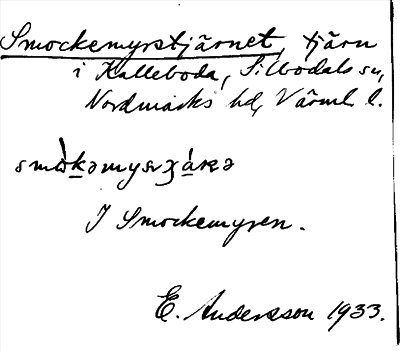 Smockemyrstjärnet, tjärn
i Kalleboda, Silbodals sn,
Nordmarks hd, Värml. l.
I Smockemyren.
E. Andersson 1933.